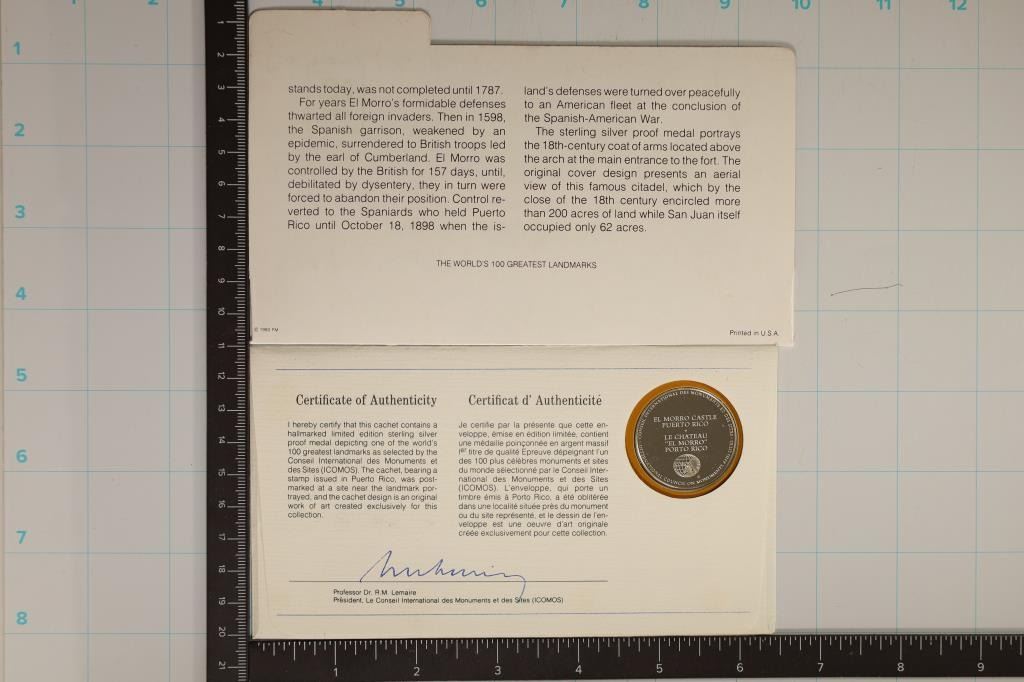 stands today, was not completed until 1787.
For years El Morro's formidable defenses
thwarted all foreign invaders. Then in 1598,
the Spanish garrison, weakened by an
epidemic, surrendered to British troops led
by the earl of Cumberland. El Morro was
controlled by the British for 157 days, until,
debilitated by dysentery, they in turn were
forced to abandon their position. Control re-
verted to the Spaniards who held Puerto
Rico until October 18, 1898 when the is-
land's defenses were turned over peacefully
to an American fleet at the conclusion of
the Spanish-American War.
The sterling silver proof medal portrays
the 18th-century coat of arms located above
the arch at the main entrance to the fort. The
original cover design presents an aerial
view of this famous citadel, which by the
close of the 18th century encircled more
than 200 acres of land while San Juan itself
occupied only 62 acres.
THE WORLD'S 100 GREATEST LANDMARKS
Printed in U.S.A.
Certificate of Authenticity
I hereby certify that this cachet contains a
hallmarked limited edition sterling silver
proof medal depicting one of the world's
100 greatest landmarks as selected by the
Conseil International des Monuments et
des Sites (ICOMOS). The cachet, bearing a
stamp issued in Puerto Rico, was post-
marked at a site near the landmark por-
trayed, and the cachet design is an original
work of art created exclusively for this
collection.
Certificat d' Authenticité
Je certifie par la présente que cette en-
veloppe, émise en édition limitée, contient
une médaille poinçonnée en argent massif
1er titre de qualité Épreuve dépeignant l'un
des 100 plus célèbres monuments et sites
du monde sélectionné par le Conseil Inter-
national des Monuments et des Sites
(ICOMOS). L'enveloppe, qui porte un
timbre émis à Porto Rico, a été oblitérée
dans une localité située près du monument
ou du site représenté, et le dessin de l'en-
veloppe est une oeuvre d'art originale
créée exclusivement pour cette collection.
EL MORRO CASTLE
PUERTO RICO
LE CHATEAU
"EL MORRO"
PORTO RICO
Professor Dr. R.M. Lemaire
Président, Le Conseil International des Monuments et des Sites (ICOMOS)